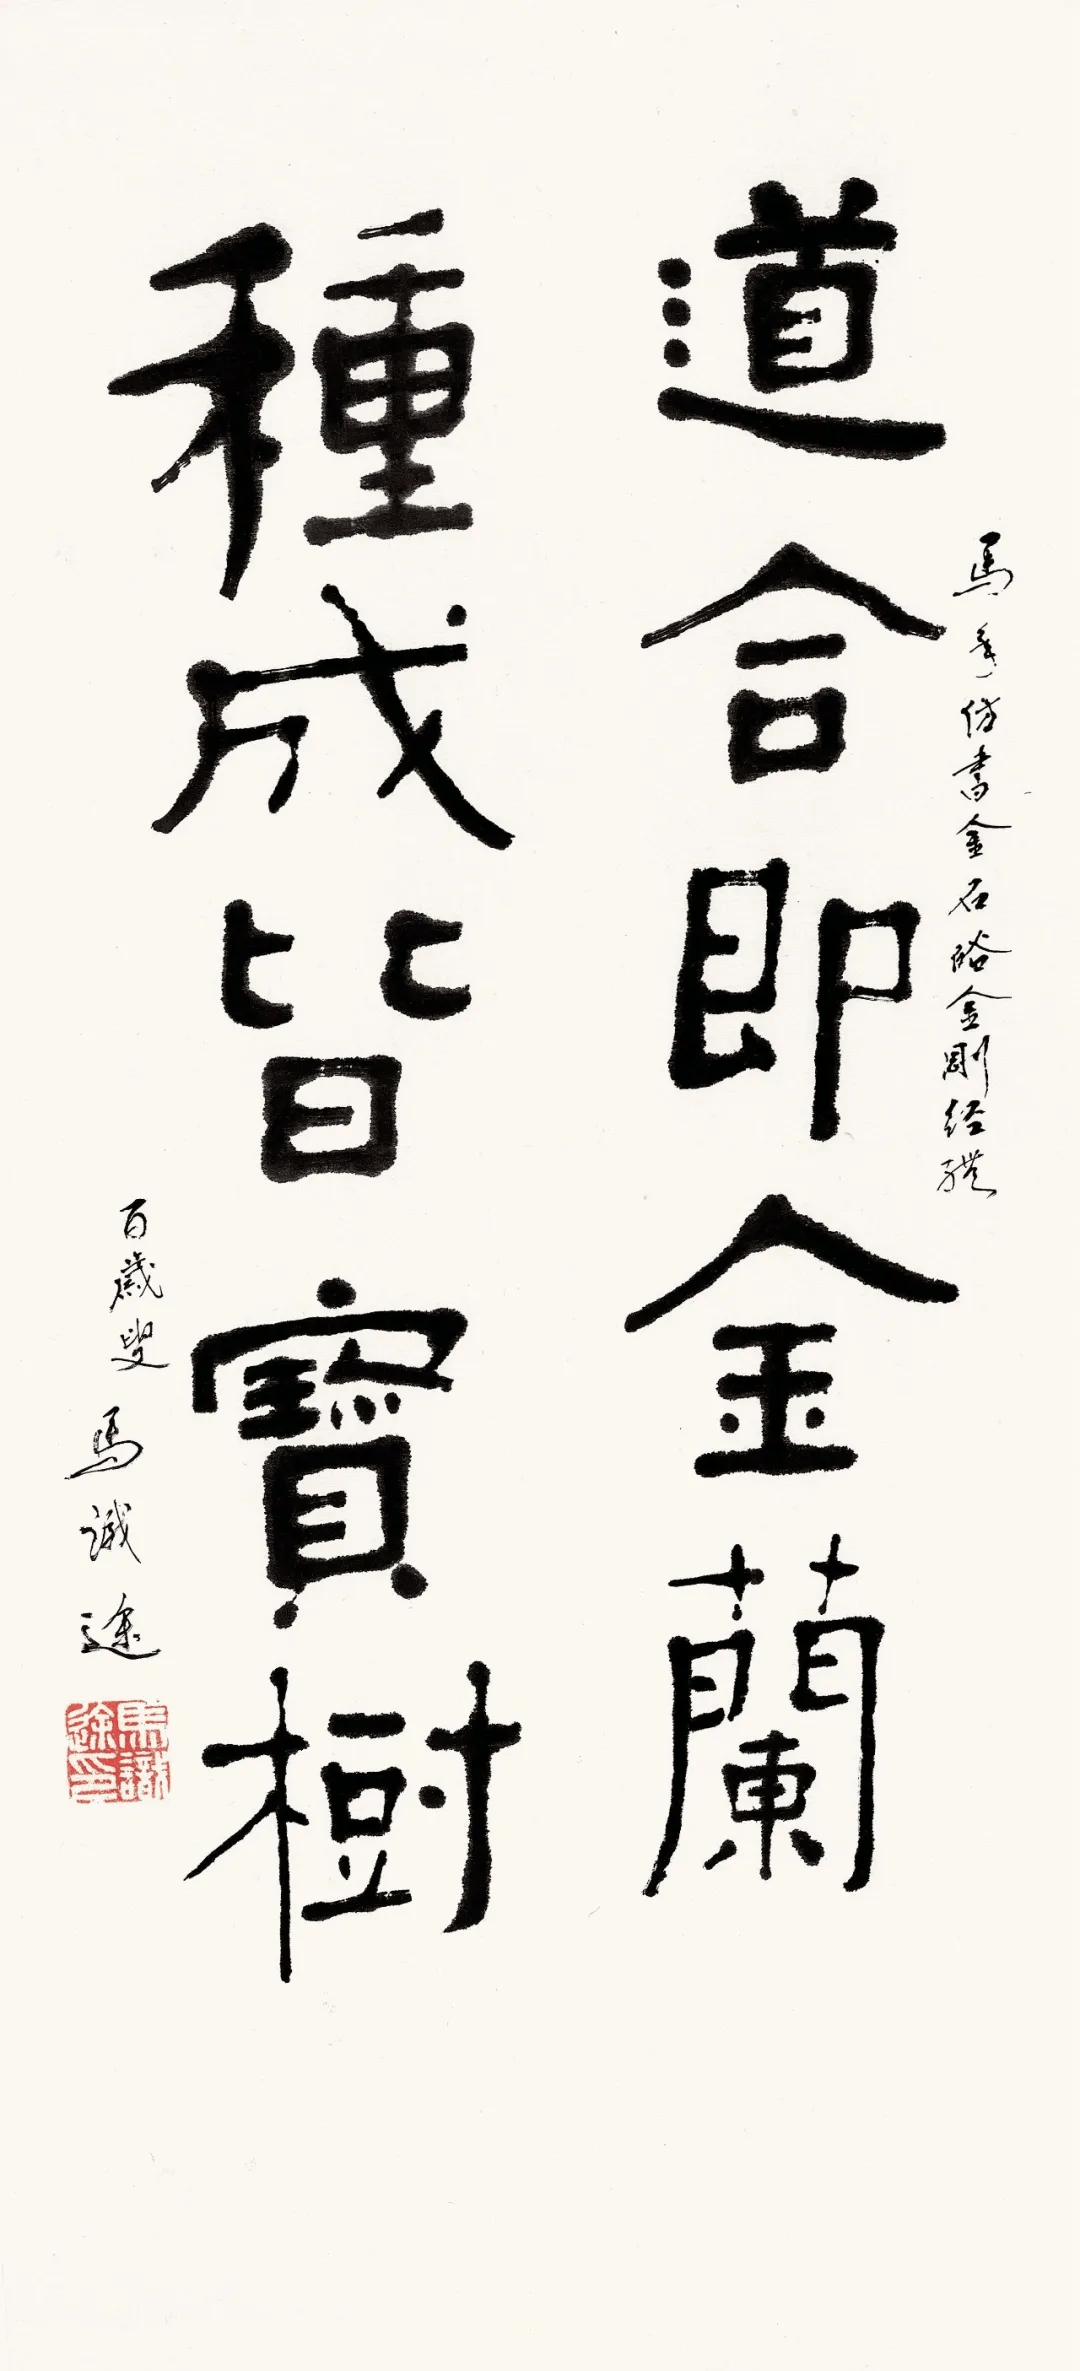 馬年仿書金石峪金剛经體
道合即金蘭
種成皆寶樹
百歲叟 馬識途
馬識途印